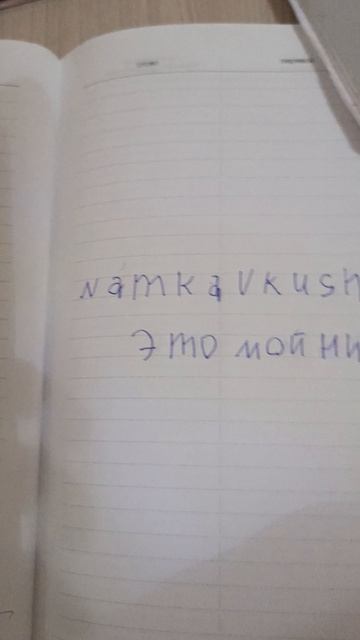 Namka Vkush
это мой ни